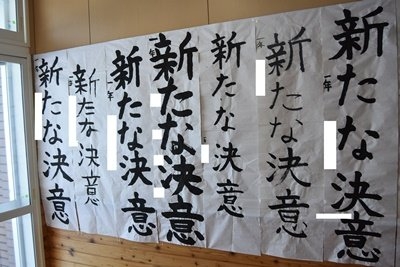 新たな決意
一年
新たな決意
一年
新たな決意
新たな決意
一年
新たな決意
一年
新たな決意
一年
新たな決意
一年